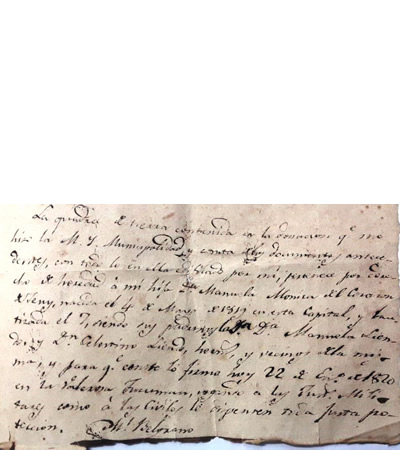 La quadra de tierra contenida en la donacion qe. me
hizo la M. Y. Municipalidad, y consta de los documentos antece-
dentes, con todo lo en ella edificado por mi, pertenece por dere-
cho de heredad á mi hija Da. Manuela Monica del Corazon
de Jesus, nacida el 4 de Mayo de 1819 en esta Capital, y bau-
tizada el 7, siendo sus padrinos la Da. Manuela Liendo,
y Dn. Celestino Liendo, hermos. y vecinos de la mis-
ma, y para qe. conste lo firmo hoy 22 de Eno. de 1820
en la Valerosa Tucuman, rogando a las Just. Milita-
res como á las Civiles le dispensen toda justa pro-
teccion. Ml. Belgrano